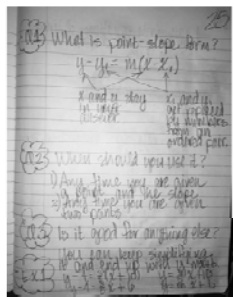 Q.1 What is point-slope form?
y-y₁ = m(x-x₁)
x and y stay
in your
answer.
x₁ and y₁
are replaced
by numbers
from an
ordered pair.
Q.2 When should you use it?
1) Any time you are given
a point and the slope
2) Any time you are given
two points
Q.3 Is it good for anything else?
You can keep simplifying
it and end up with